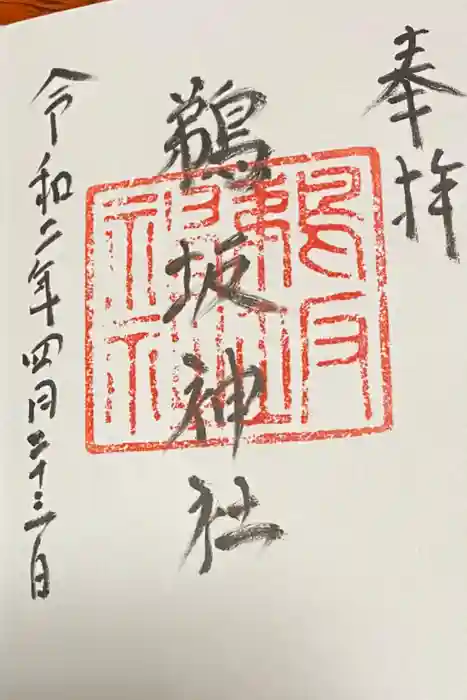 奉拝
鵜坂神社
令和二年四月二十三日